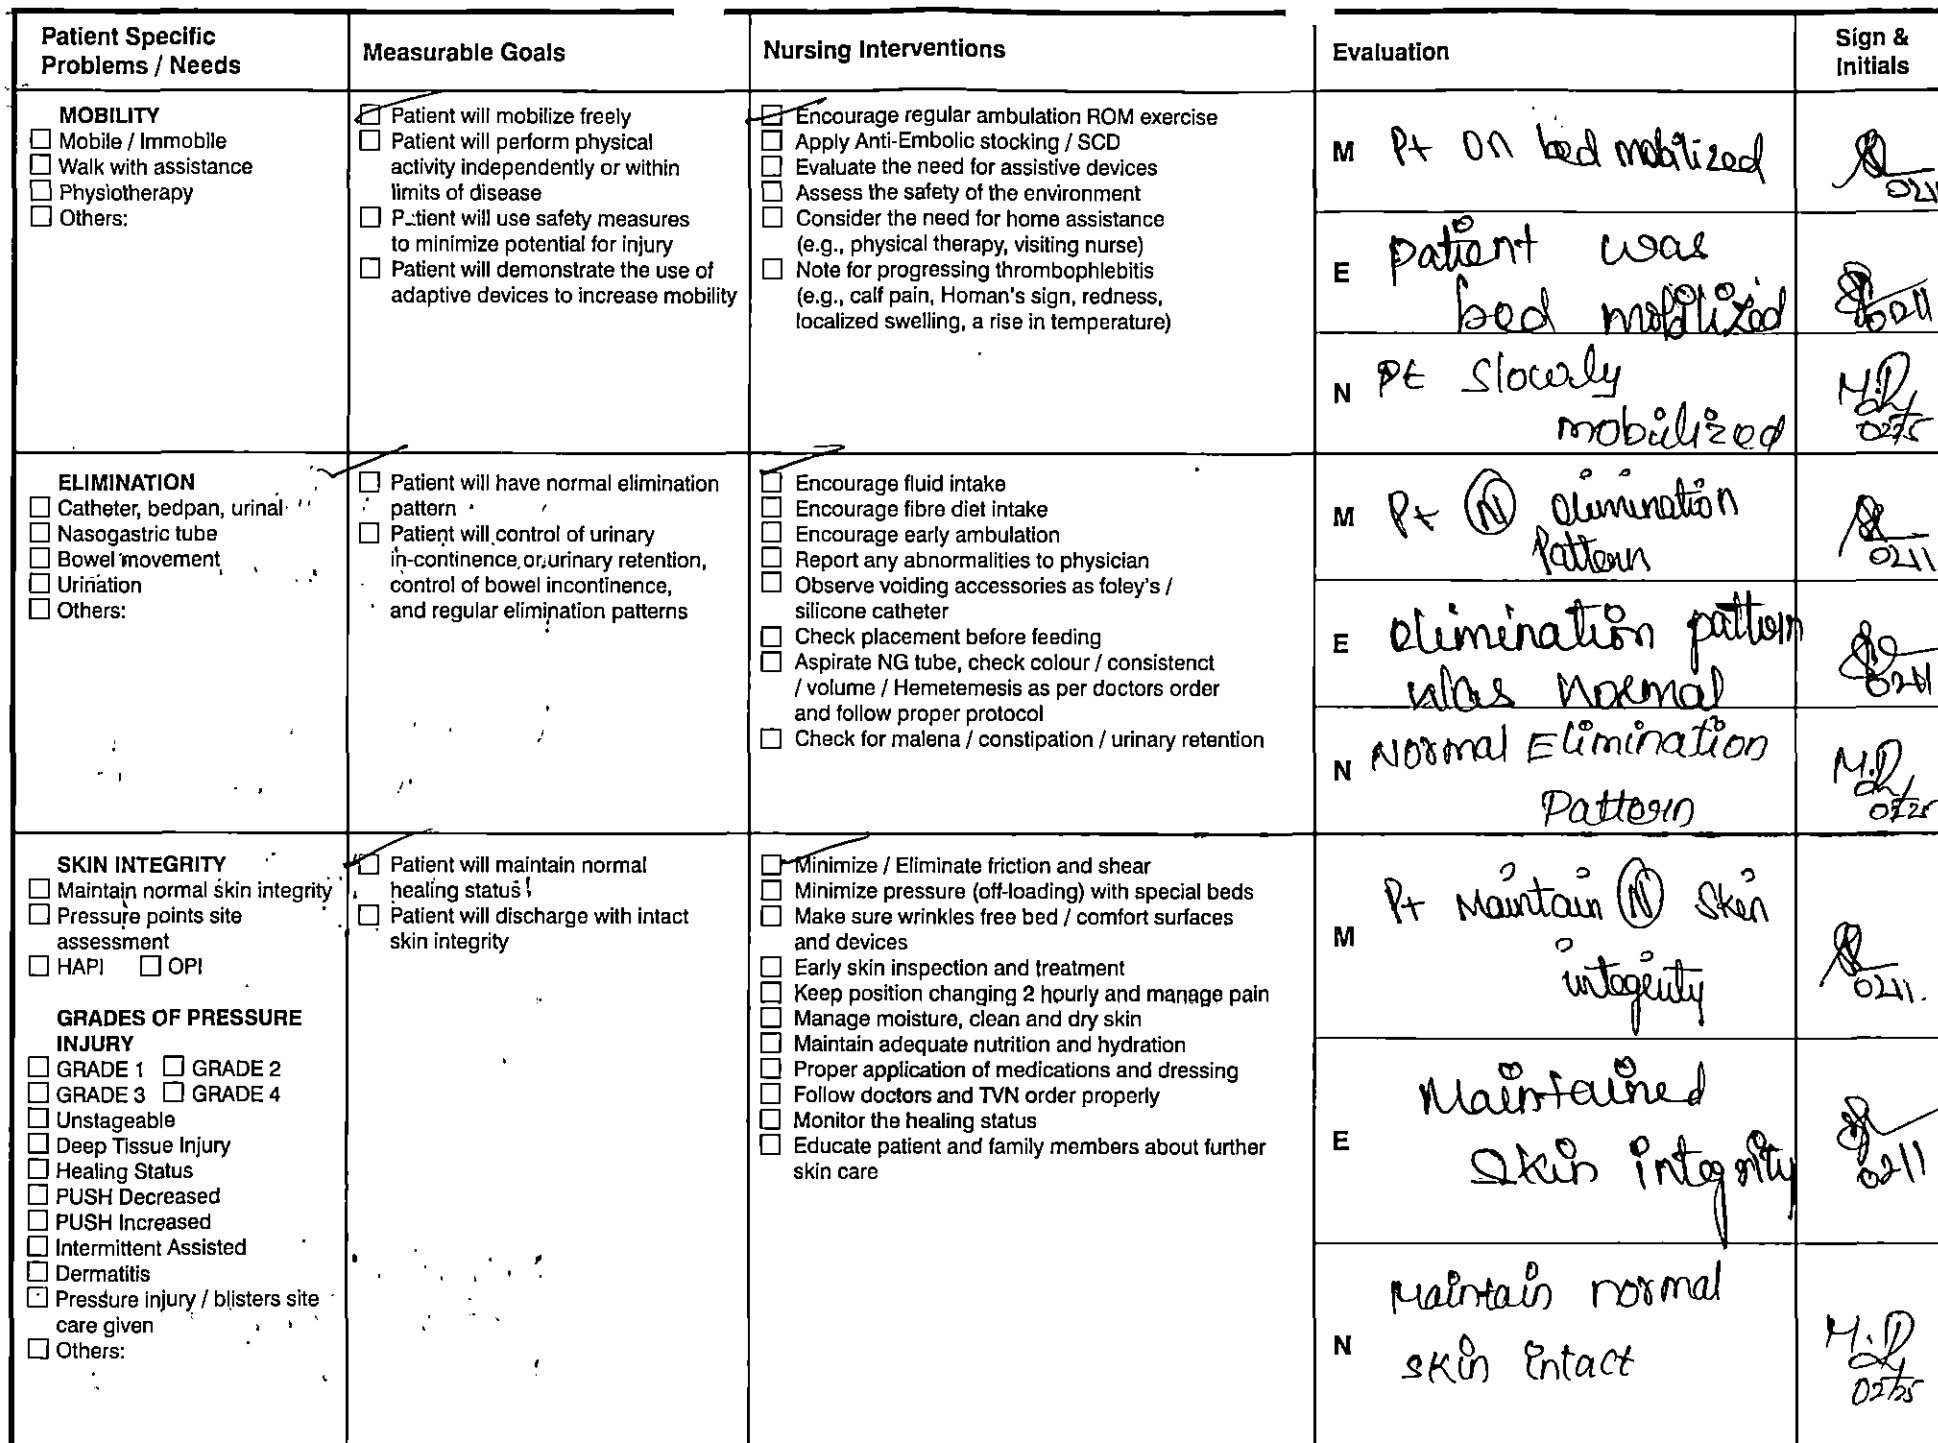 Patient Specific
Problems / Needs
Measurable Goals
Nursing Interventions
Evaluation
Sign &
Initials
MOBILITY
☐ Mobile / Immobile
☐ Walk with assistance
☐ Physiotherapy
☐ Others:
☑ Patient will mobilize freely
☐ Patient will perform physical
activity independently or within
limits of disease
☐ Patient will use safety measures
to minimize potential for injury
☐ Patient will demonstrate the use of
adaptive devices to increase mobility
☑ Encourage regular ambulation ROM exercise
☐ Apply Anti-Embolic stocking / SCD
☐ Evaluate the need for assistive devices
☐ Assess the safety of the environment
☐ Consider the need for home assistance
(e.g., physical therapy, visiting nurse)
☐ Note for progressing thrombophlebitis
(e.g., calf pain, Homan's sign, redness,
localized swelling, a rise in temperature)
M Pt on bed mobilized
0211
E patient was
bed mobilized
0211
N Pt slowly
mobilized
M.D
0225
ELIMINATION
☐ Catheter, bedpan, urinal
☐ Nasogastric tube
☐ Bowel movement
☐ Urination
☐ Others:
☑ Patient will have normal elimination
pattern
☐ Patient will control of urinary
in-continence, or urinary retention,
control of bowel incontinence,
and regular elimination patterns
☑ Encourage fluid intake
☐ Encourage fibre diet intake
☐ Encourage early ambulation
☐ Report any abnormalities to physician
☐ Observe voiding accessories as foley's /
silicone catheter
☐ Check placement before feeding
☐ Aspirate NG tube, check colour / consistenct
/ volume / Hemetemesis as per doctors order
and follow proper protocol
☐ Check for malena / constipation / urinary retention
M Pt Ⓝ elimination
Pattern
0211
E elimination pattern
was normal
0211
N Normal Elimination
Pattern
M.D
0225
SKIN INTEGRITY
☐ Maintain normal skin integrity
☐ Pressure points site
assessment
☐ HAPI ☐ OPI
GRADES OF PRESSURE
INJURY
☐ GRADE 1 ☐ GRADE 2
☐ GRADE 3 ☐ GRADE 4
☐ Unstageable
☐ Deep Tissue Injury
☐ Healing Status
☐ PUSH Decreased
☐ PUSH Increased
☐ Intermittent Assisted
☐ Dermatitis
☐ Pressure injury / blisters site
care given
☐ Others:
☑ Patient will maintain normal
healing status
☐ Patient will discharge with intact
skin integrity
☑ Minimize / Eliminate friction and shear
☐ Minimize pressure (off-loading) with special beds
☐ Make sure wrinkles free bed / comfort surfaces
and devices
☐ Early skin inspection and treatment
☐ Keep position changing 2 hourly and manage pain
☐ Manage moisture, clean and dry skin
☐ Maintain adequate nutrition and hydration
☐ Proper application of medications and dressing
☐ Follow doctors and TVN order properly
☐ Monitor the healing status
☐ Educate patient and family members about further
skin care
M Pt Maintain Ⓝ Skin
integrity
0211.
E Maintained
Skin integrity
0211
N Maintain normal
skin intact
M.D
0225